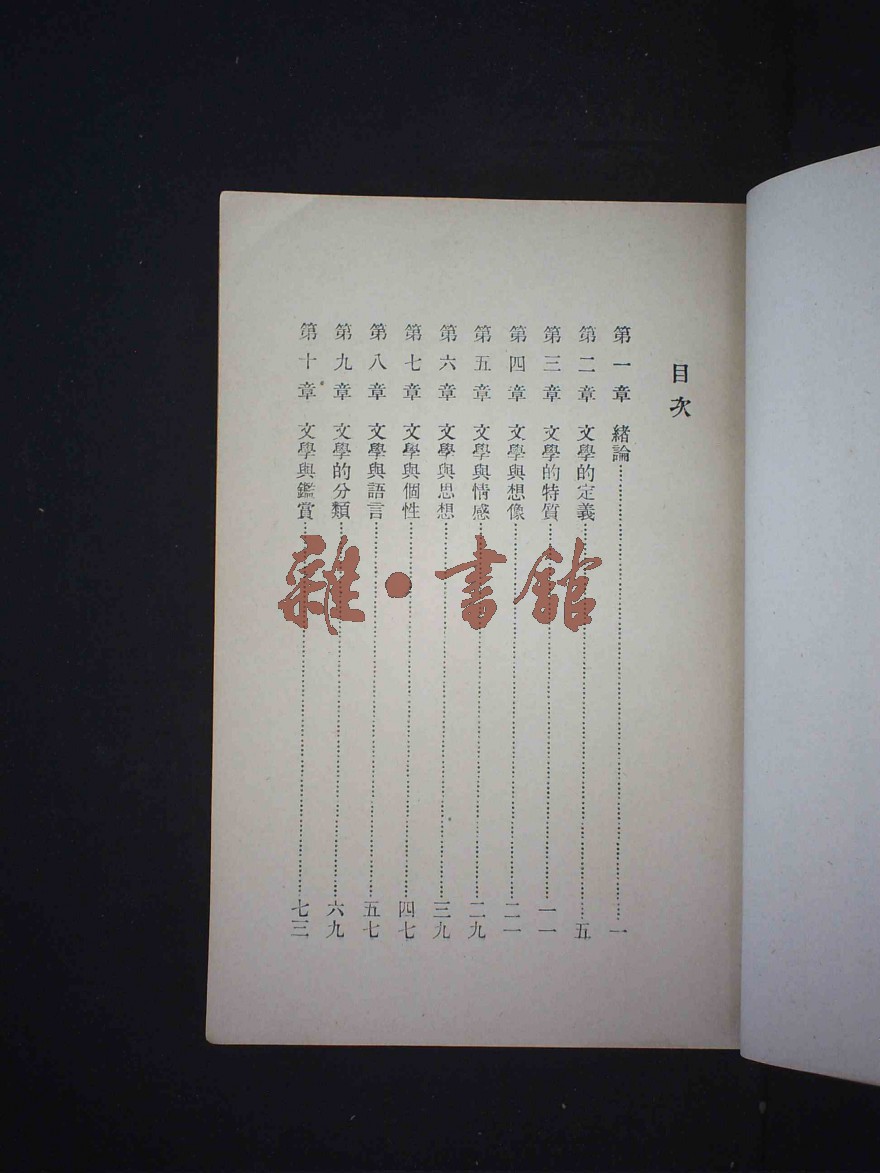 目次
第一章 緒論……一
第二章 文學的定義……五
第三章 文學的特質……一一
第四章 文學與想像……二一
第五章 文學與情感……二九
第六章 文學與思想……三九
第七章 文學與個性……四七
第八章 文學與語言……五七
第九章 文學的分類……六九
第十章 文學與鑑賞……七三
雜·書館